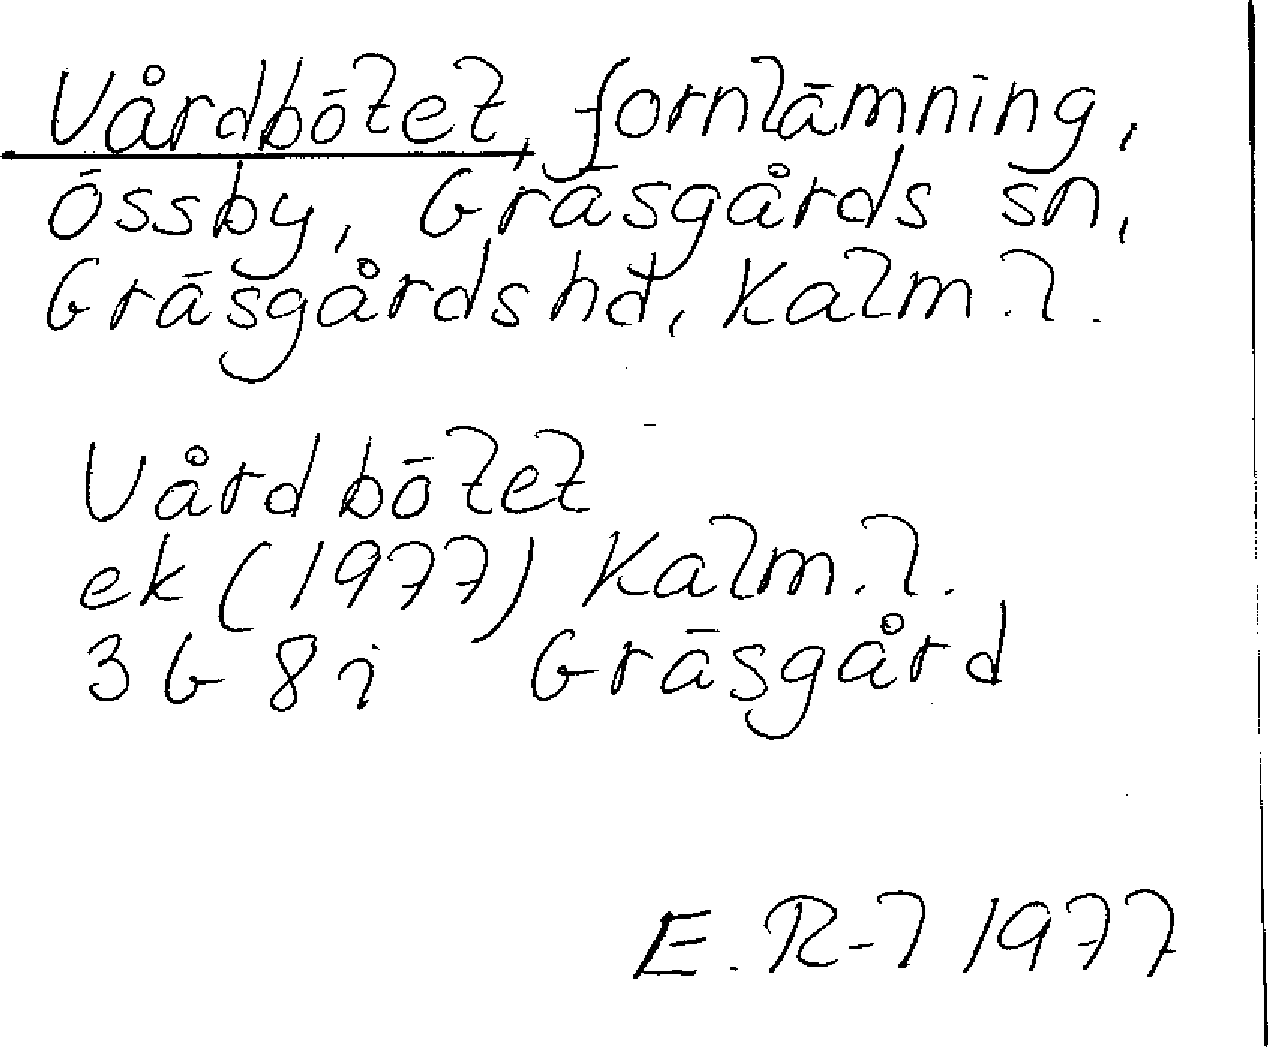 Vårdbötet, fornlämning,
Össby, Gräsgårds sn,
Gräsgårds hd, Kalm. l.
Vårdbötet
ek (1977) Kalm. l.
3G 8i Gräsgård
E. R-l 1977